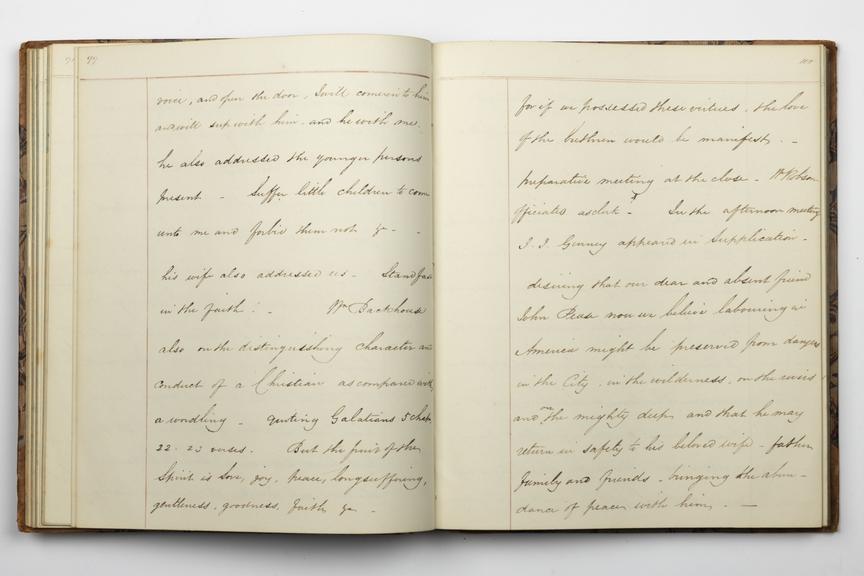 99
voice, and open the door, I will come in to him
and will sup with him and he with me
he also addressed the younger persons
present - Suffer little children to come
unto me and forbid them not &c - -
his wife also addressed us - Stand fast
in the faith. - Wm Backhouse
also on the distinguishing character and
conduct of a Christian as compared with
a wordling - quoting Galatians 5 chap
22 - 23 verses. But the fruit of the
Spirit is love, joy, peace, longsuffering,
gentleness, goodness, faith &c -
100
for if we possessed these virtues, the love
of the brethren would be manifest. -
preparative meeting at the close - Wm Robson
officiated as clerk - In the afternoon meeting
J. J. Gurney appeared in Supplication -
desiring that our dear and absent friend
John Pease now we believe labouring in
America might be preserved from dangers
in the City, in the wilderness, on the rivers
and on the mighty deep, and that he may
return in safety to his beloved wife - father
family and friends - bringing the abun-
dance of peace with him, . -